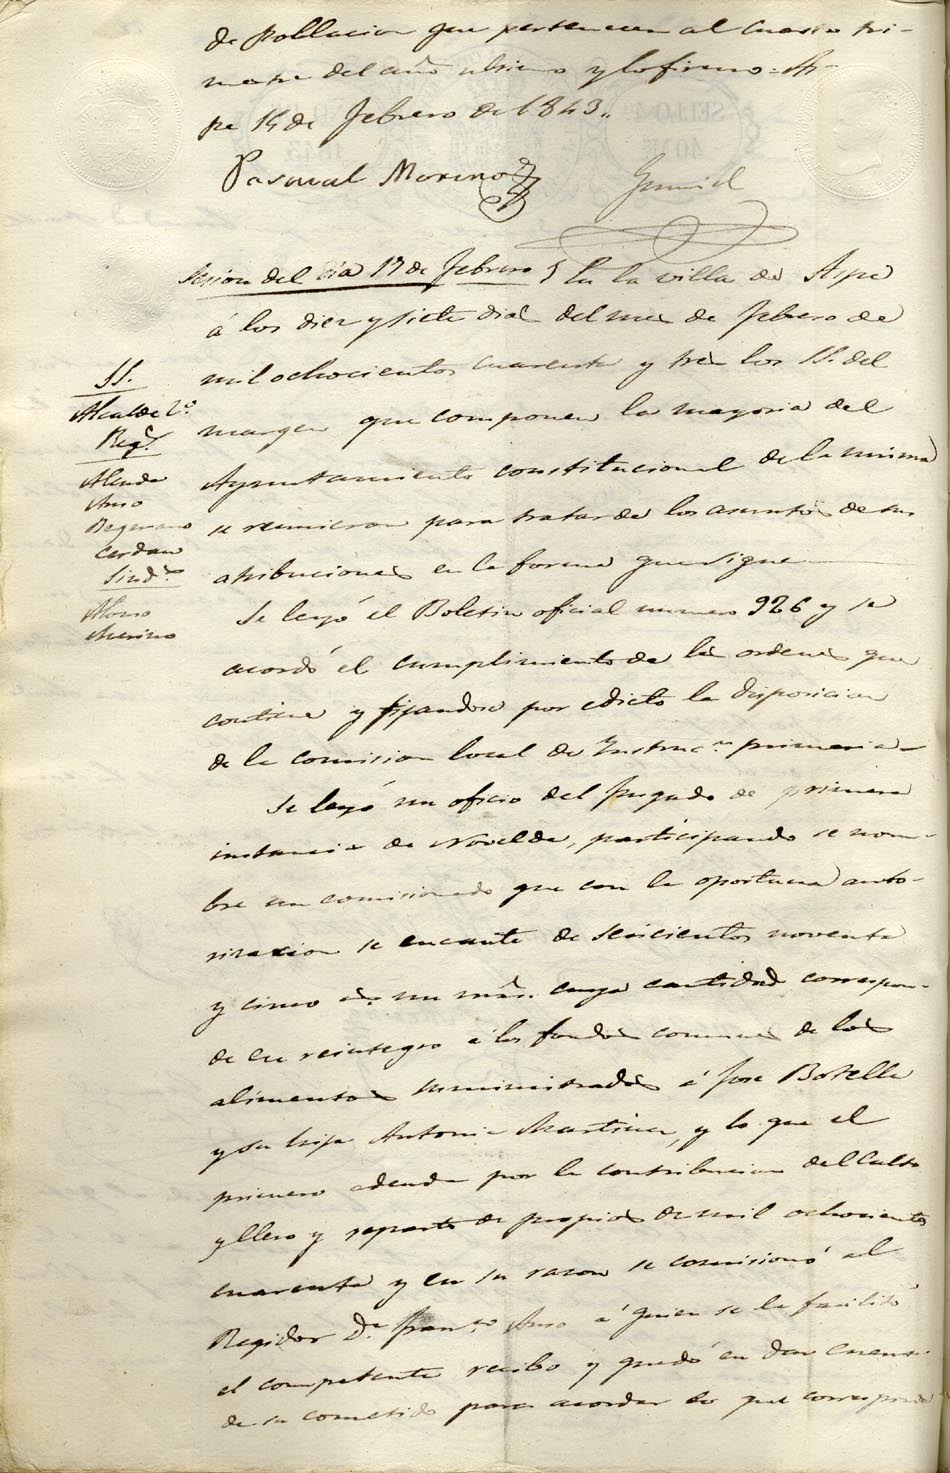 de poblacion que pertenecen al cuarto tri-
mestre del año ultimo y lo firmo. As-
pe 14 de Febrero de 1843..
Pascual Moreno
Sesion del dia 17 de Febrero } En la villa de Aspe
á los diez y siete dias del mes de Febrero de
mil ochocientos cuarenta y tres los SS. del
margen que componen la mayoria del
Ayuntamiento constitucional de la misma
se reunieron para tratar de los asuntos de sus
atribuciones en la forma que sigue
SS.
Alcalde 2º
Reg.s
Almda
Botella
Cerdan
Sind.s
Alonso
Merino
Se leyó el Boletin oficial numero 926 y se
acordó el cumplimiento de las ordenes que
contiene y fijandose por edicto la disposicion
de la comision local de Instruc.n primaria
Se leyó un oficio del Juzgado de primera
instancia de Novelda, participando se nom-
bre un comisionado que con la oportuna auto-
rizacion se encante de seiscientos noventa
y cinco r.s un mrs. cuya cantidad correspon-
de en reintegro á los fondos comunes de los
alimentos suministrados á Jose Botella
y su hija Antonia Martinez, y lo que el
primero adeuda por la contribucion del Culto
y Clero y reparto de propios de mil ochocientos
cuarenta y en su razon se comisionó al
Regidor D.n Fran.co á quien se le facilitó
el competente recibo y quedó en dar cuenta
de su cometido para acordar lo que corresponde